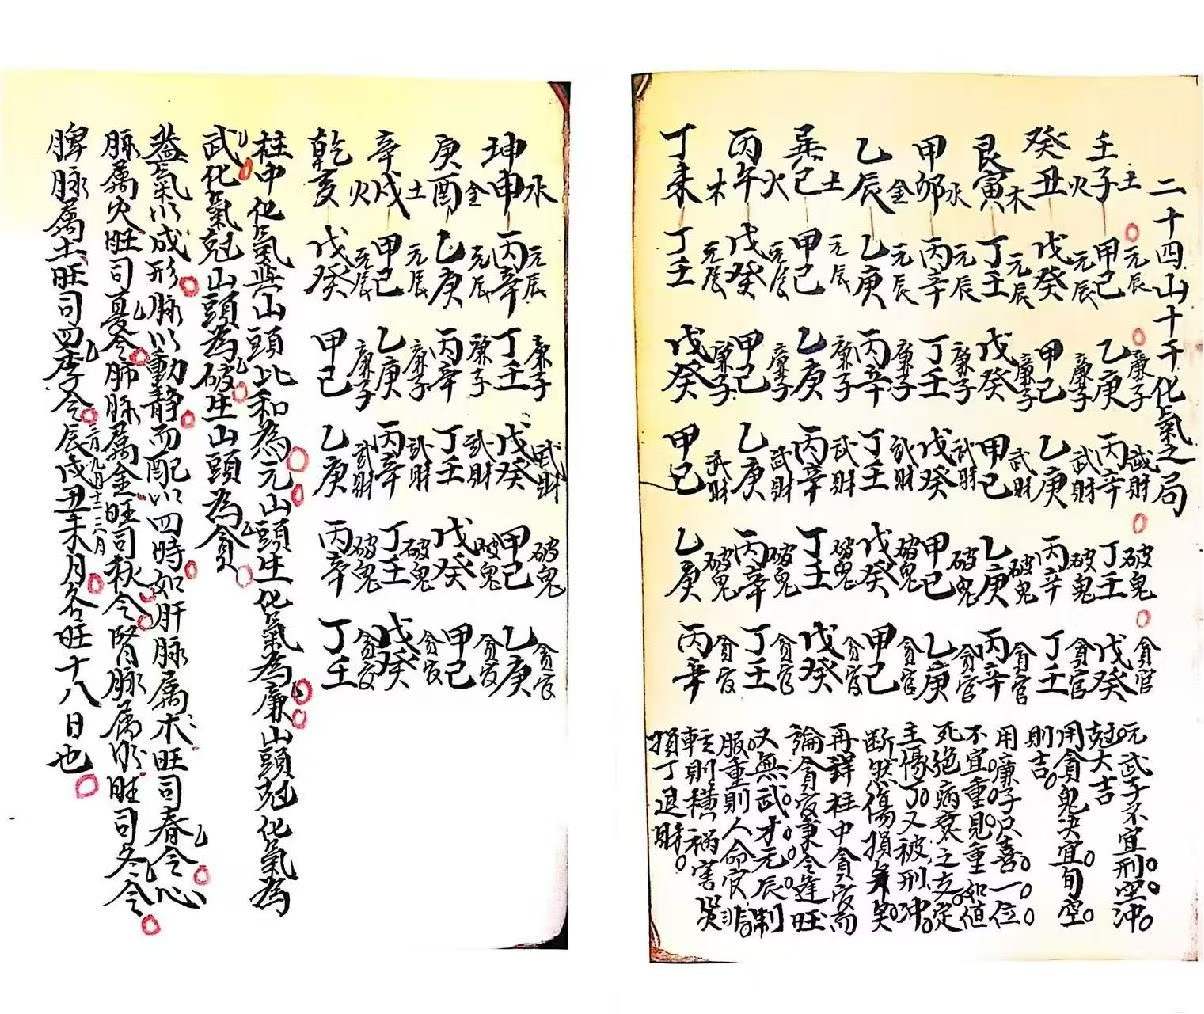 二十四山十干化氣之局
壬子 土 甲己 元辰 乙庚 廉子 丙辛 武財 丁壬 破鬼 戊癸 貪官
癸丑 火 戊癸 元辰 甲己 廉子 乙庚 武財 丙辛 破鬼 丁壬 貪官
艮寅 木 丁壬 元辰 戊癸 廉子 甲己 武財 乙庚 破鬼 丙辛 貪官
甲卯 水 丙辛 元辰 丁壬 廉子 戊癸 武財 甲己 破鬼 乙庚 貪官
乙辰 金 乙庚 元辰 丙辛 廉子 丁壬 武財 戊癸 破鬼 甲己 貪官
巽巳 土 甲己 元辰 乙庚 廉子 丙辛 武財 丁壬 破鬼 戊癸 貪官
丙午 火 戊癸 元辰 甲己 廉子 乙庚 武財 丙辛 破鬼 丁壬 貪官
丁未 木 丁壬 元辰 戊癸 廉子 甲己 武財 乙庚 破鬼 丙辛 貪官
元武子不宜刑空冲
尅大吉
用貪鬼決宜旬空
則吉
用廉子只喜一位
不宜重見重和值
死絕病衰之支定
主傷丁又被刑冲
断然傷損
再詳柱中貪官而
論貪官秉令逢旺
又無武才元辰制
服重則人命官非
輕則橫禍害
損丁退財
坤申 水 丙辛 元辰 丁壬 廉子 戊癸 武財 甲己 破鬼 乙庚 貪官
庚酉 金 乙庚 元辰 丙辛 廉子 丁壬 武財 戊癸 破鬼 甲己 貪官
辛戌 土 甲己 元辰 乙庚 廉子 丙辛 武財 丁壬 破鬼 戊癸 貪官
乾亥 火 戊癸 元辰 甲己 廉子 乙庚 武財 丙辛 破鬼 丁壬 貪官
柱中化氣與山頭比和為元山頭生化氣為廉山頭尅化氣為
武化氣尅山頭為破生山頭為貪
蓋氣以成形脉以動靜而配以四時如肝脉属木旺司春令心
脉属火旺司夏令肺脉属金旺司秋令腎脉属水旺司冬令
脾脉属土旺司四季令三六九十二月辰戌丑未月各旺十八日也